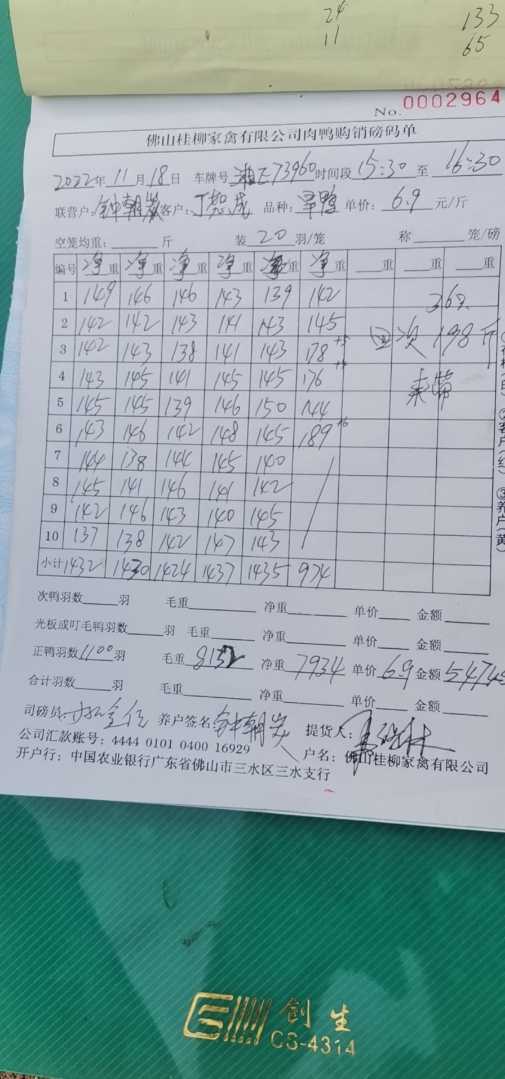 24 133
11 65
No. 0002964
佛山桂柳家禽有限公司肉鸭购销磅码单
2022年11月18日 车牌号 湘E73960 时间段 15:30 至 16:30
联营户: 钟朝炭 客户: 品种: 旱鸭 单价: 6.9 元/斤
空笼均重: 斤 装 20 羽/笼 称 笼/磅
编号 净重 净重 净重 净重 净重 净重 重 重 重
1 149 146 146 143 139 142
2 142 142 143 141 143 145
3 142 143 138 141 143 178 次 198 斤
4 143 145 141 145 145 176
5 145 145 139 146 150 144
6 143 146 142 148 145 189
7 144 138 144 145 140
8 145 141 146 141 142
9 142 146 143 140 145
10 137 138 142 147 143
小计 1432 1430 1424 1437 1435 974
次鸭羽数 羽 毛重 净重 单价 金额
光板或叮毛鸭羽数 羽 毛重 净重 单价 金额
正鸭羽数 1100 羽 毛重 8132 净重 7934 单价 6.9 金额
合计羽数 羽 毛重 净重 单价 金额
司磅员: 养户签名: 提货人:
公司汇款账号: 4444 0101 0400 16929 户名: 佛山桂柳家禽有限公司
开户行: 中国农业银行广东省佛山市三水区三水支行
创生
CS-4314